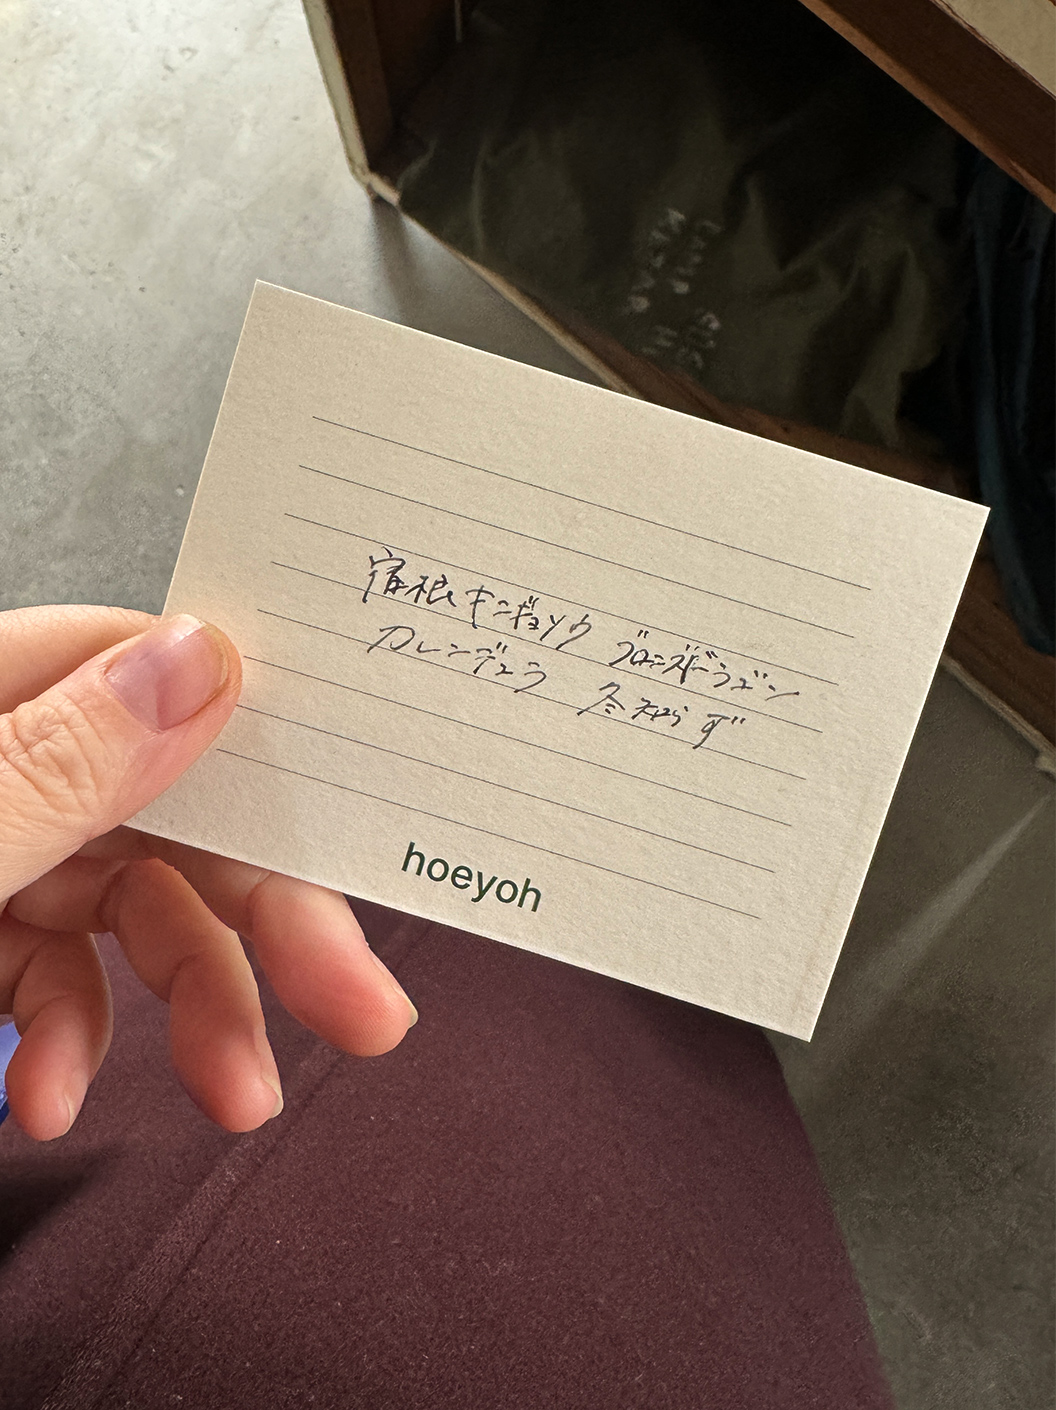 宿根キンギョソウ ブロンズドラゴン
カレンデュラ 冬知らず
hoeyoh